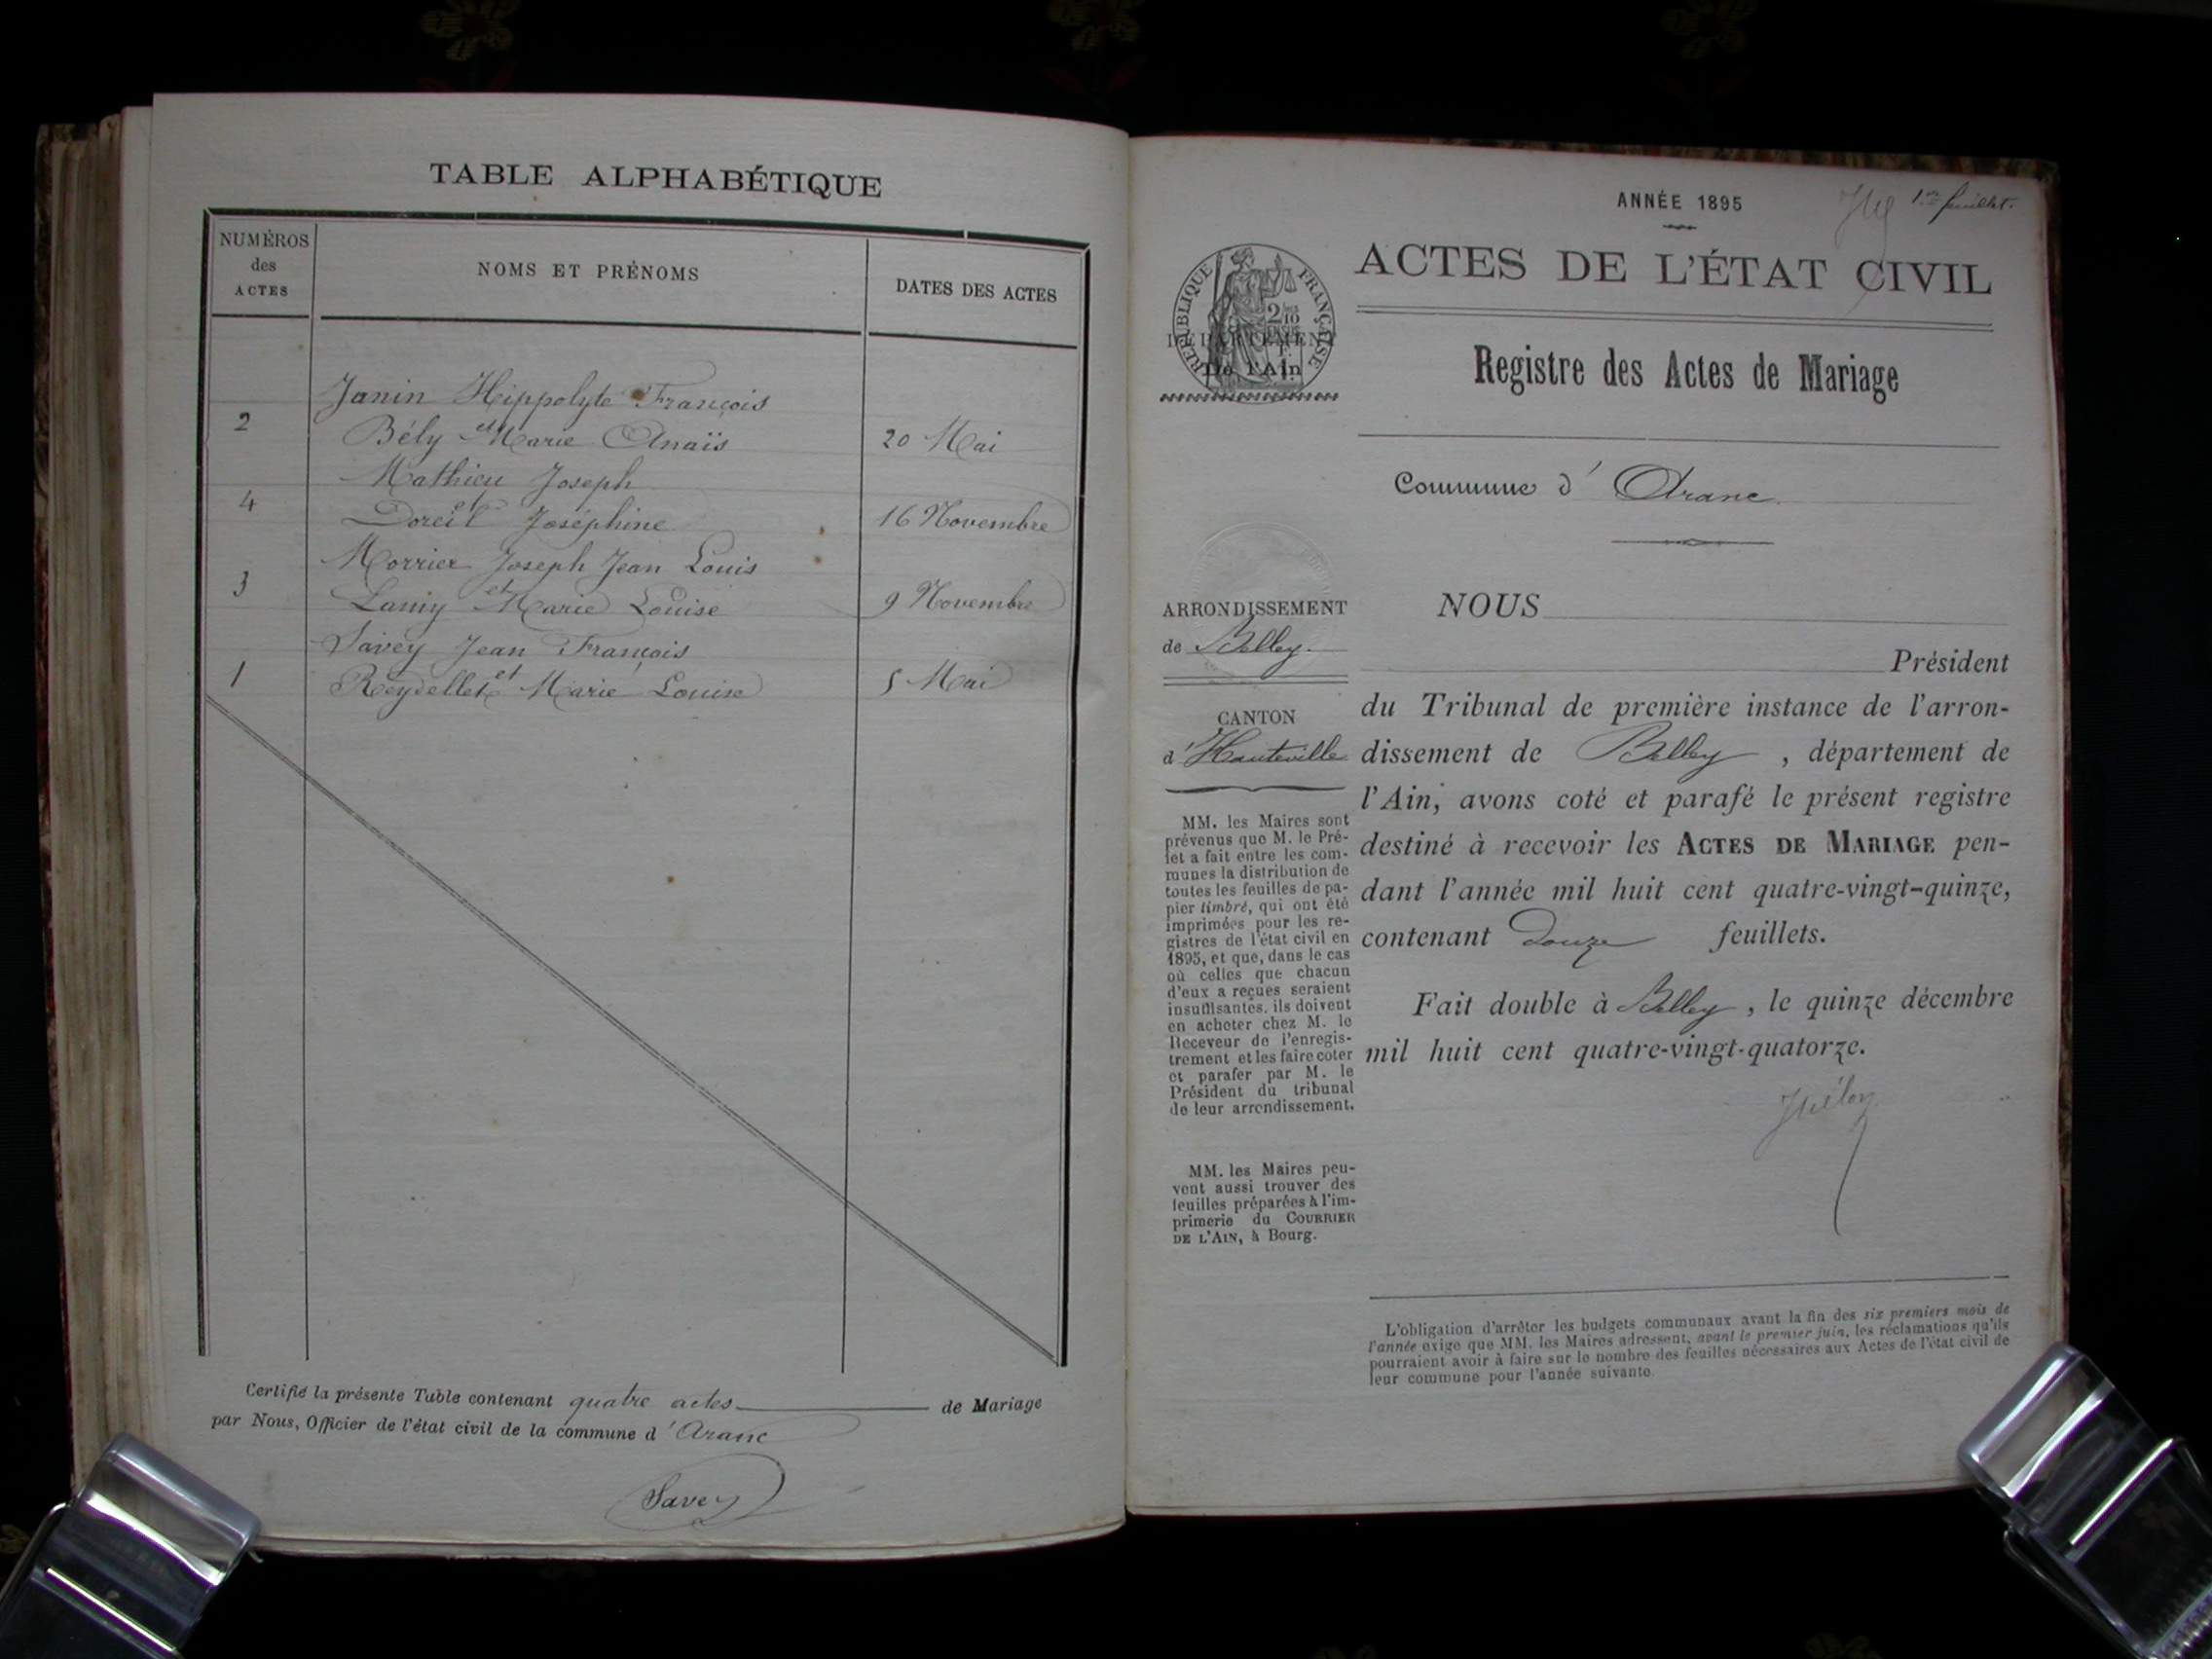 TABLE ALPHABÉTIQUE
NUMÉROS
des
ACTES
NOMS ET PRÉNOMS
DATES DES ACTES
Janin Hippolyte François
2 et
Bély Marie Anaïs 20 Mai
Mathieu Joseph
4 et
Doreil Joséphine 16 Novembre
Morrier Joseph Jean Louis
3 et
Lamy Marie Louise 9 Novembre
Savey Jean François
1 et
Reydellet Marie Louise 5 Mai
Certifié la présente Table contenant quatre actes de Mariage
par Nous, Officier de l'état civil de la commune d'Aranc
Savey
ANNÉE 1895
1er feuillet.
ACTES DE L'ÉTAT CIVIL
RÉPUBLIQUE FRANÇAISE
2/10
DÉPARTEMENT
De l'Ain
Registre des Actes de Mariage
Commune d'Aranc
ARRONDISSEMENT
de Belley.
CANTON
d'Hauteville
MM. les Maires sont
prévenus que M. le Pré-
fet a fait entre les com-
munes la distribution de
toutes les feuilles de pa-
pier timbré, qui ont été
imprimées pour les re-
gistres de l'état civil en
1895, et que, dans le cas
où celles que chacun
d'eux a reçues seraient
insuffisantes, ils doivent
en acheter chez M. le
Receveur de l'enregis-
trement et les faire coter
et parafer par M. le
Président du tribunal
de leur arrondissement.
MM. les Maires peu-
vent aussi trouver des
feuilles préparées à l'im-
primerie du COURRIER
DE L'AIN, à Bourg.
NOUS
Président
du Tribunal de première instance de l'arron-
dissement de Belley, département de
l'Ain, avons coté et parafé le présent registre
destiné à recevoir les ACTES DE MARIAGE pen-
dant l'année mil huit cent quatre-vingt-quinze,
contenant Douze feuillets.
Fait double à Belley, le quinze décembre
mil huit cent quatre-vingt-quatorze.
L'obligation d'arrêter les budgets communaux avant la fin des six premiers mois de
l'année exige que MM. les Maires adressent, avant le premier juin, les réclamations qu'ils
pourraient avoir à faire sur le nombre des feuilles nécessaires aux Actes de l'état civil de
leur commune pour l'année suivante.